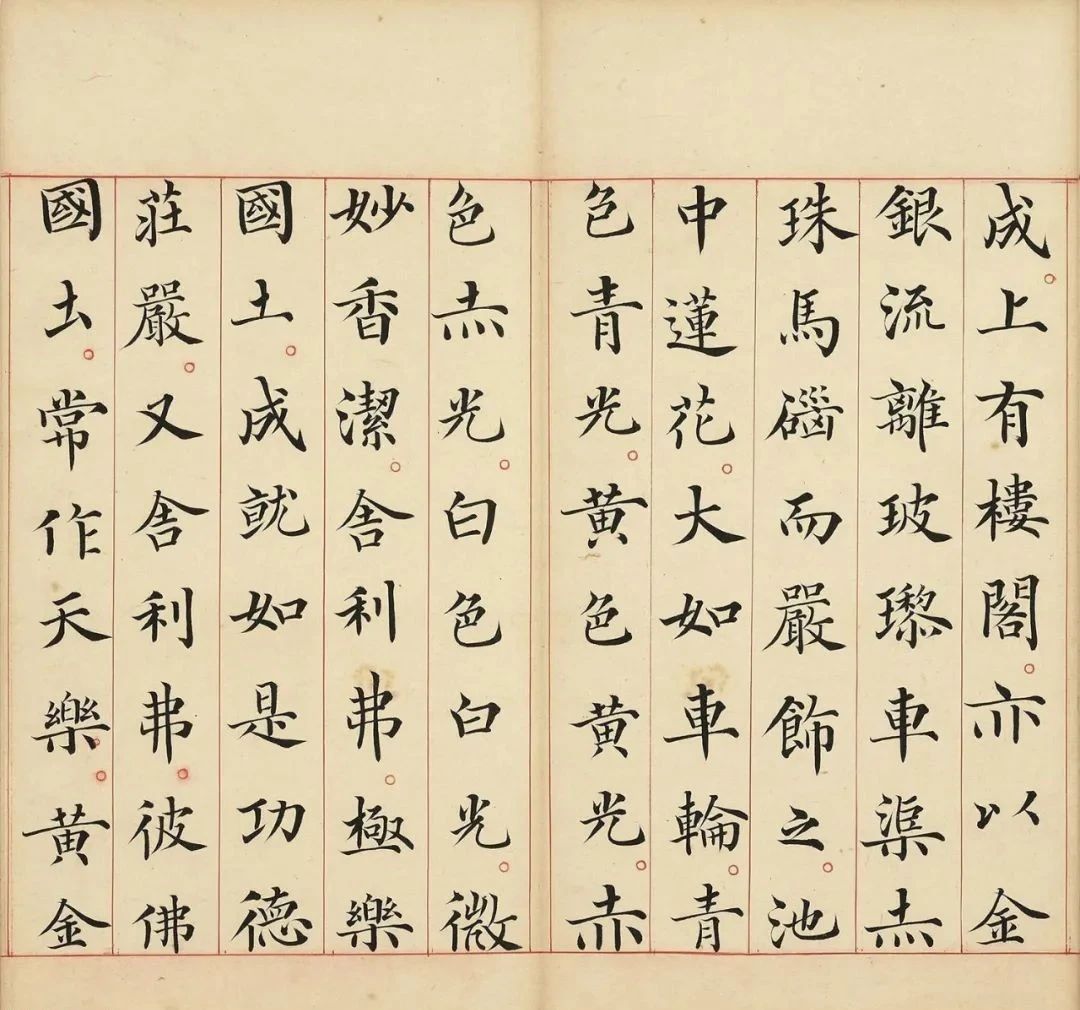 成。上有樓閣。亦以金
銀流離玻瓈車渠赤
珠馬碯而嚴飾之。池
中蓮花。大如車輪。青
色青光。黃色黃光。赤
色赤光。白色白光。微
妙香潔。舍利弗。極樂
國土。成就如是功德
莊嚴。又舍利弗。彼佛
國土。常作天樂。黃金